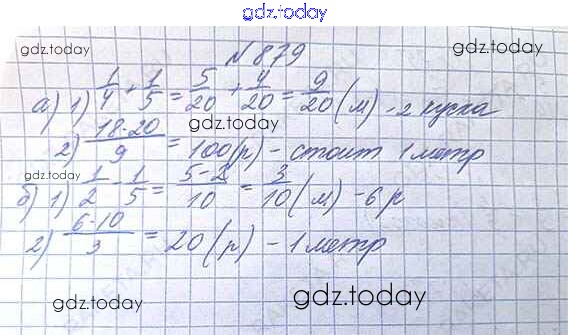 gdz.today
gdz.today № 879 gdz.today
а) 1) 1/4 + 1/5 = 5/20 + 4/20 = 9/20 (м) - 2 куска
gdz.today
2) 18·20/9 = 100(р) - стоит 1 метр
gdz.today
б) 1) 1/2 - 1/5 = 5-2/10 = 3/10 (м) - 6 р
2) 6·10/3 = 20 (р) - 1 метр
gdz.today gdz.today